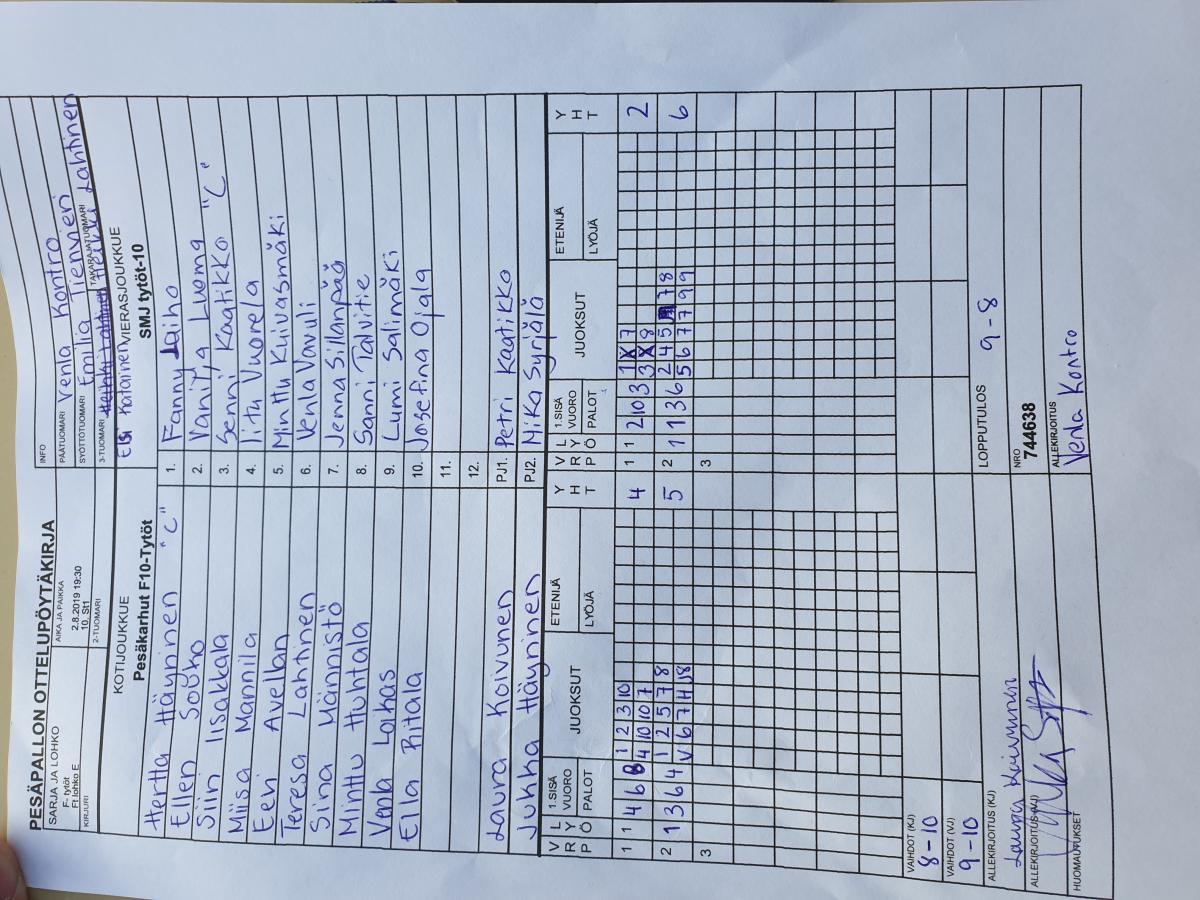 PESÄPALLON OTTELUPÖYTÄKIRJA
SARJA JA LOHKO
F- tytöt
Ft lohko E
AIKA JA PAIKKA
2.8.2019 19:30
10. St1
INFO
PÄÄTUOMARI Venla Kontro
SYÖTTÖTUOMARI Emilia Tienvieri
KIRJURI
2-TUOMARI
3-TUOMARI
TAKARAJATUOMARI Heikki Lahtinen
KOTIJOUKKUE
Pesäkarhut F10-Tytöt
VIERASJOUKKUE
SMJ tytöt-10
Hertta Häyrinen "C"
Ellen Souko
Siin Iisakkala
Miisa Mannila
Eevi Avellan
Teresa Lahtinen
Sina Männistö
Minttu Huhtala
Venla Loikas
Ella Ritala
Laura Koivunen
Jukka Häyrinen
1. Fanny Laiho
2. Vanilja Luoma
3. Senni Kaatikko "C"
4. Iitu Vuorela
5. Minttu Kuivasmäki
6. Venla Vavuli
7. Jenna Sillanpää
8. Sanni Talvitie
9. Lumi Salimäki
10. Josefina Ojala
11.
12.
PJ1. Petri Kaatikko
PJ2. Mika Syrjälä
V R P L Y Ö 1.SISÄ VUORO PALOT JUOKSUT ETENIJÄ LYÖJÄ Y H T
1 1 4 6 1 2 3 10 4
4 10 10 7
2 1 3 6 4 1 2 5 7 8 5
V 6 7 H J8
3
V R P L Y Ö 1.SISÄ VUORO PALOT JUOKSUT ETENIJÄ LYÖJÄ Y H T
1 1 2 10 3 1 X 7 2
3 X 8
2 1 1 3 6 2 4 5 7 8 6
5 6 7 7 9 9
3
VAIHDOT (KJ)
8-10
VAIHDOT (VJ)
9-10
ALLEKIRJOITUS (KJ)
Laura Koivunen
ALLEKIRJOITUS (VJ)
HUOMAUTUKSET
LOPPUTULOS
9-8
NRO
744638
ALLEKIRJOITUS
Venla Kontro